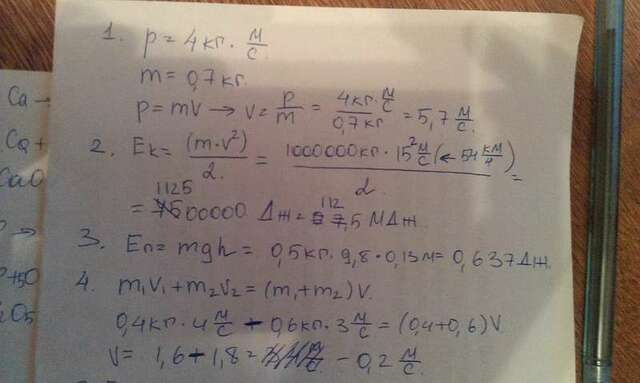 1. p = 4 кг. м/с
m = 0,7 кг.
p = mv → v = p/m = 4 кг. м/с / 0,7 кг = 5,7 м/с.
2. Eк = (m·v²)/2 = 1000000 кг. 15² м/с (← 54 км/ч) / 2 =
1125 112
= 500000 Дж = ,5 МДж
3. Eп = mgh = 0,5 кг. 9,8 · 0,13 м = 0,637 Дж.
4. m₁v₁ + m₂v₂ = (m₁ + m₂) v.
0,4 кг. 4 м/с - 0,6 кг. 3 м/с = (0,4 + 0,6) v
v = 1,6 - 1,8 = - 0,2 м/с
Ca →
Ca +
CaO